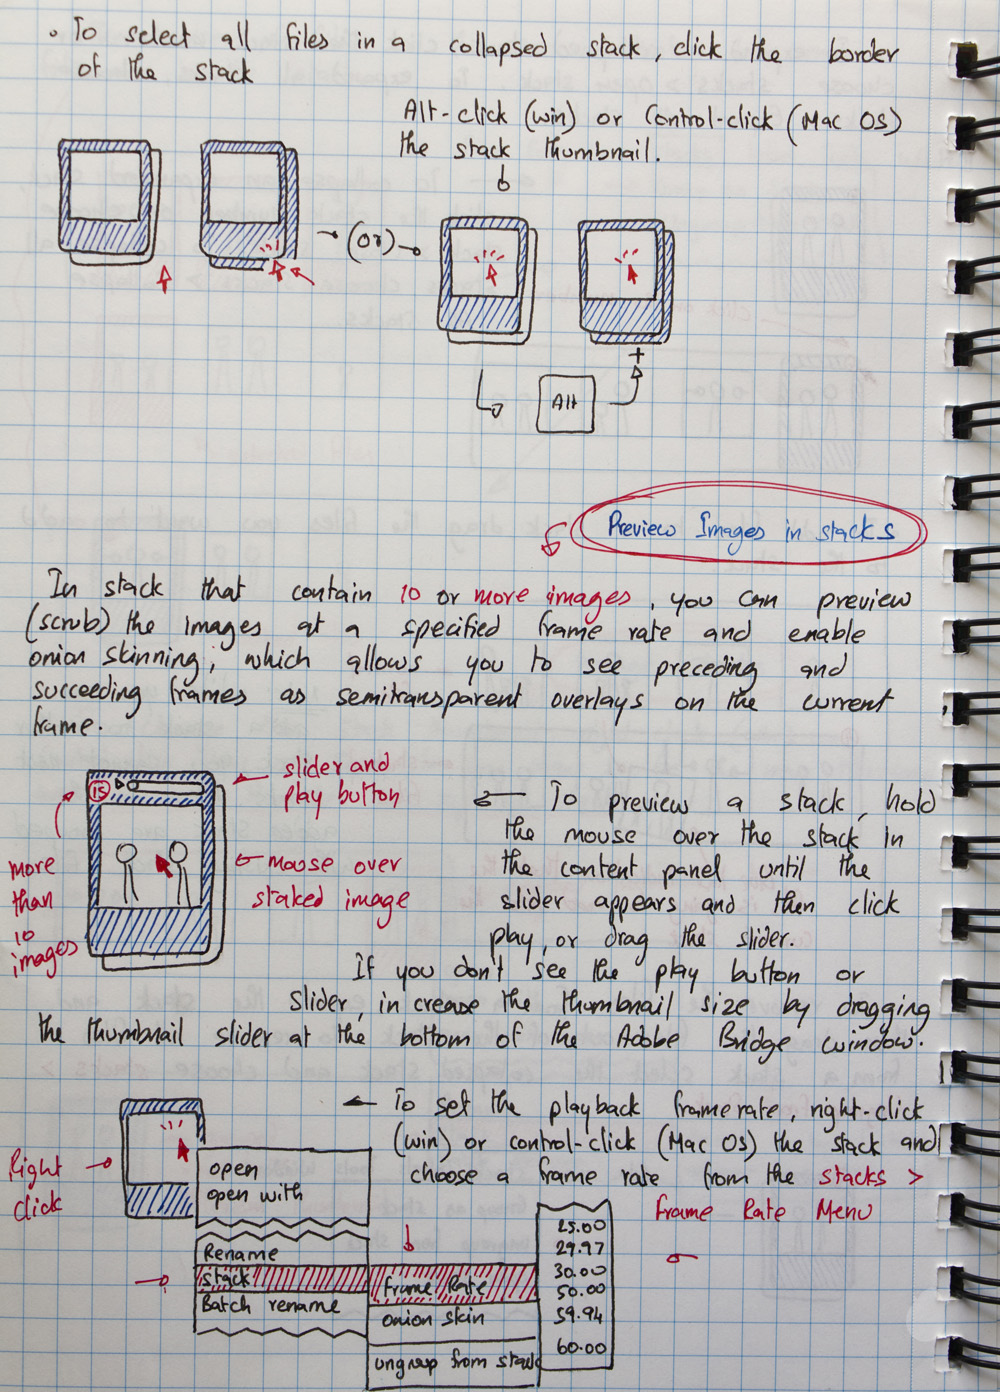 • To select all files in a collapsed stack, click the border
of the stack
Alt-click (win) or Control-click (Mac OS)
the stack thumbnail.
(or)
+
Alt
Preview Images in stacks
In stack that contain 10 or more images, you can preview
(scrub) the images at a specified frame rate and enable
onion skinning, which allows you to see preceding and
succeeding frames as semitransparent overlays on the current
frame.
slider and
play button
15
mouse over
staked image
more
than
10
images
To preview a stack, hold
the mouse over the stack in
the content panel until the
slider appears and then click
play, or drag the slider.
If you don't see the play button or
slider, in crease the thumbnail size by dragging
the thumbnail slider at the bottom of the Adobe Bridge window.
To set the playback frame rate, right-click
(win) or control-click (Mac OS) the stack and
choose a frame rate from the stacks >
Frame Rate Menu
Right
click
open
open with
Rename
stack
Batch rename
frame Rate
onion skin
ungroup from stack
25.00
29.97
30.00
50.00
59.94
60.00